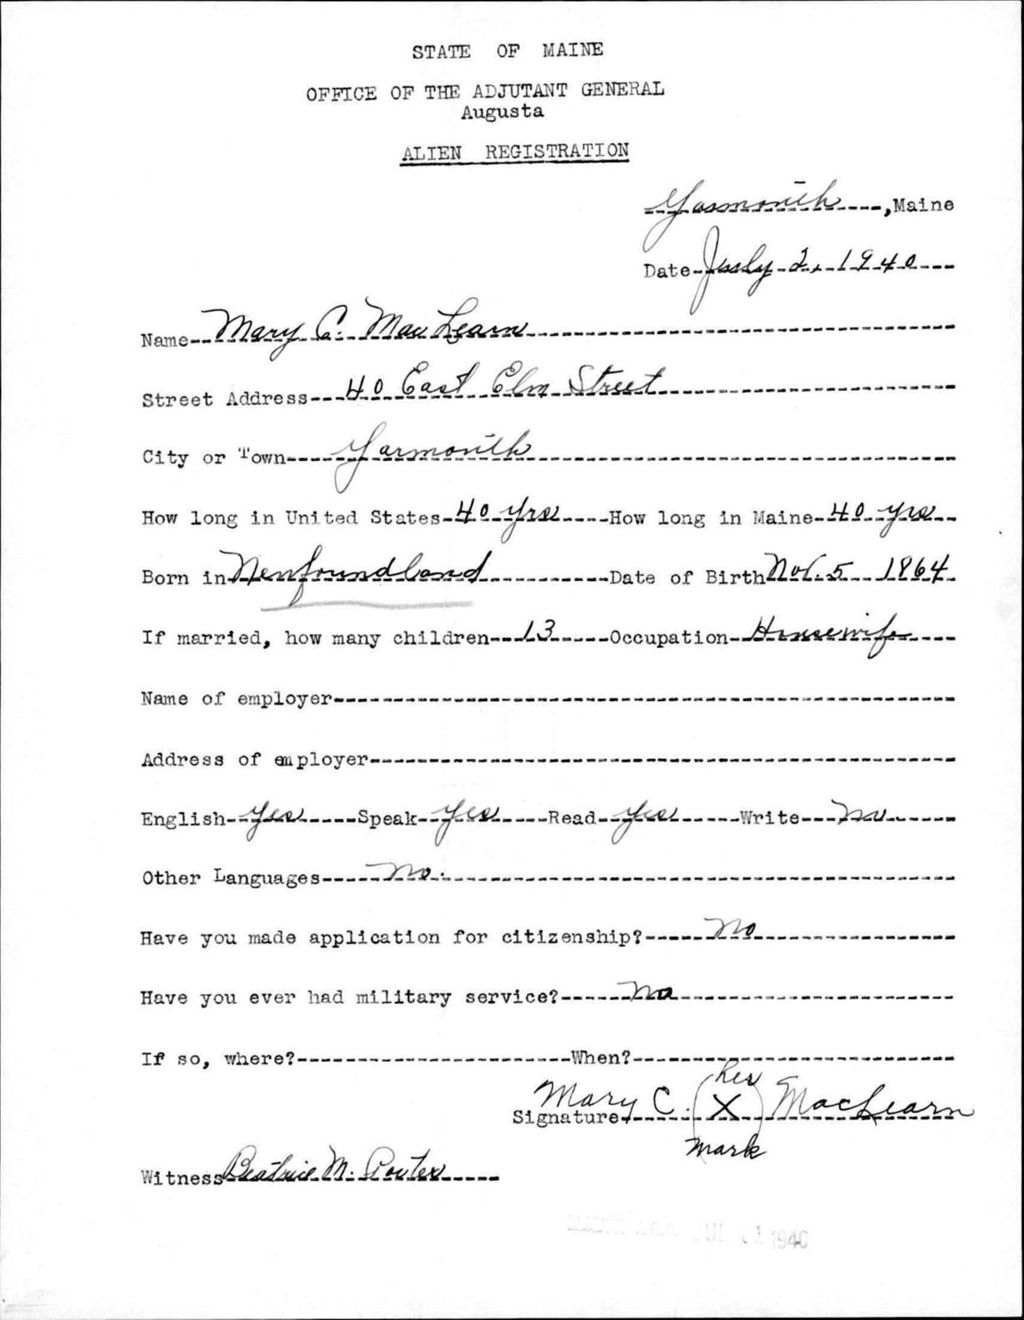 STATE OF MAINE
OFFICE OF THE ADJUTANT GENERAL
Augusta
ALIEN REGISTRATION
Yarmouth, Maine
Date July 2, 1940
Name Mary C. MacLearn
Street Address 40 East Elm Street
City or Town Yarmouth
How long in United States 40 yrs How long in Maine 40 yrs
Born in Newfoundland Date of Birth Nov. 5 1864
If married, how many children 13 Occupation Housewife
Name of employer
Address of employer
English Yes Speak Yes Read Yes Write No
Other Languages No.
Have you made application for citizenship? No
Have you ever had military service? No
If so, where? When?
her
Signature Mary C. (X) MacLearn
mark
Witness Beatrice M.
1940